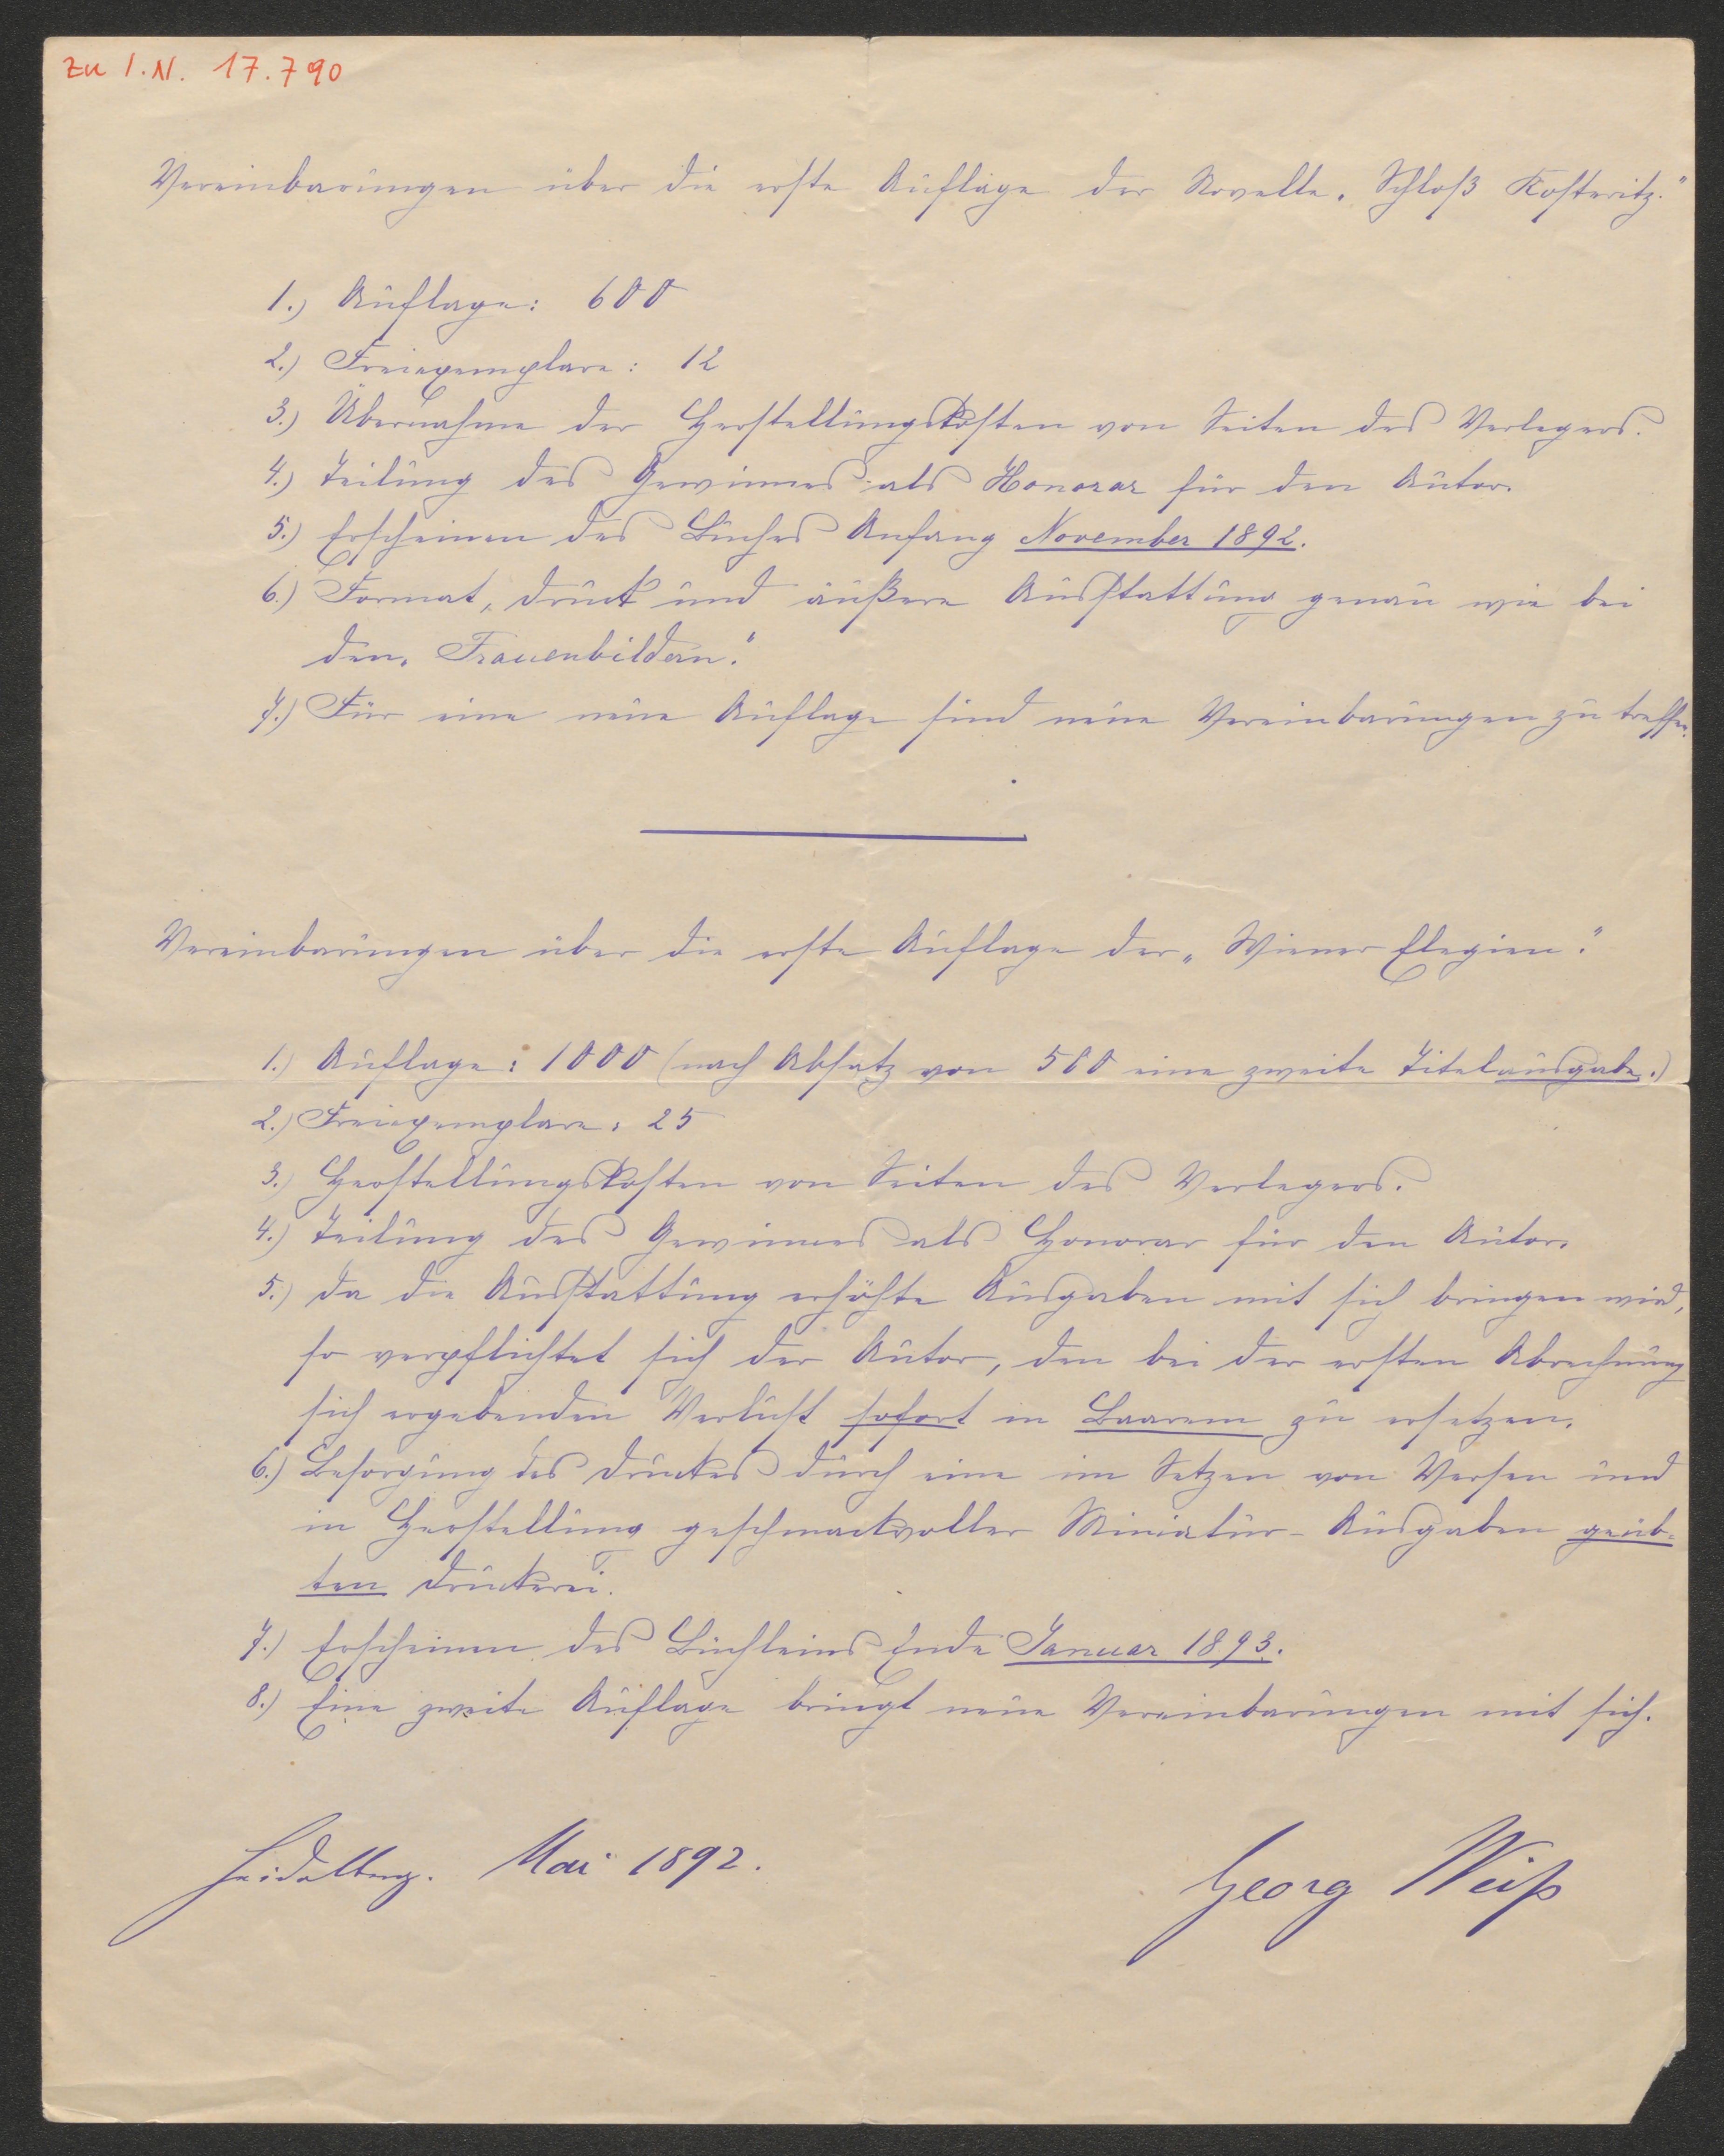 zu I.N. 17.790
Vereinbarungen über die erste Auflage der Novelle „Schloß Kosteritz."
1.) Auflage: 600
2.) Freiexemplare: 12
3.) Übernahme der Herstellungskosten von Seiten des Verlegers.
4.) Teilung des Gewinnes als Honorar für den Autor.
5.) Erscheinen des Buches Anfang November 1892.
6.) Format, Druck und äußere Ausstattung genau wie bei
den „Frauenbildern."
7.) Für eine neue Auflage sind neue Vereinbarungen zu treffen.
Vereinbarungen über die erste Auflage der „Wiener Elegien."
1.) Auflage: 1000 (nach Absatz von 500 eine zweite Titelausgabe.)
2.) Freiexemplare: 25
3.) Herstellungskosten von Seiten des Verlegers.
4.) Teilung des Gewinnes als Honorar für den Autor.
5.) Da die Ausstattung erhöhte Ausgaben mit sich bringen wird,
so verpflichtet sich der Autor, den bei der ersten Abrechnung
sich ergebenden Verlust sofort in Baarem zu ersetzen.
6.) Besorgung des Druckes durch eine im Setzen von Versen und
in Herstellung geschmackvoller Miniatür-Ausgaben geüb-
ten Druckerei.
7.) Erscheinen des Büchleins Ende Januar 1893.
8.) Eine zweite Auflage bringt neue Vereinbarungen mit sich.
Heidelberg. Mai 1892.
Georg Weiß